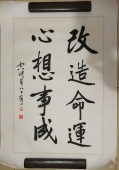 改造命運
心想事成